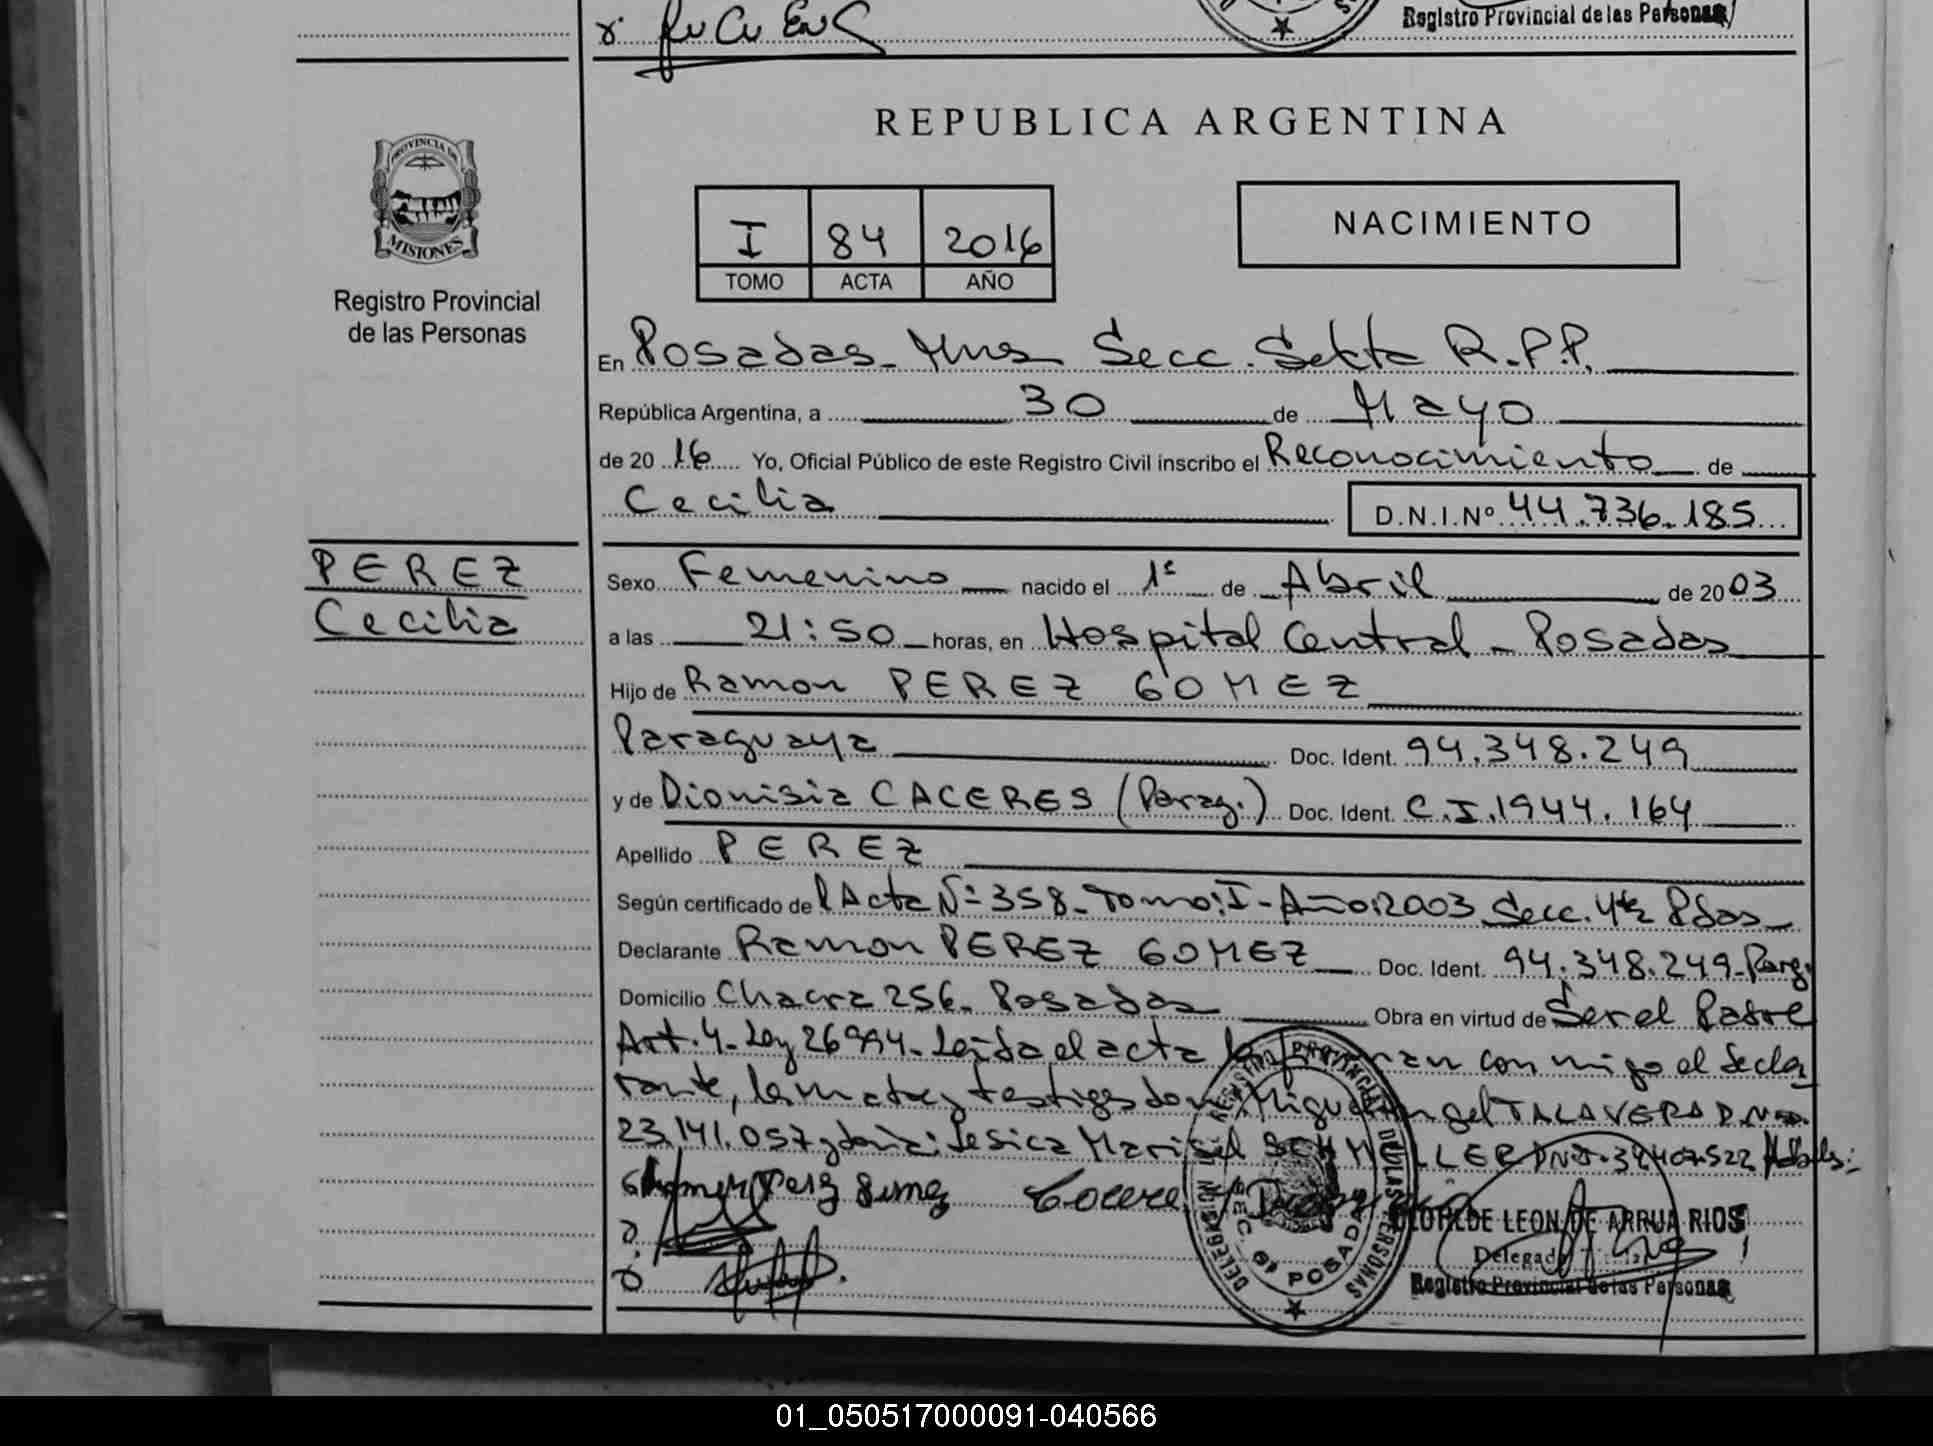 Registro Provincial de las Personas
REPUBLICA ARGENTINA
PROVINCIA DE
MISIONES
Registro Provincial
de las Personas
I 84 2016
TOMO ACTA AÑO
NACIMIENTO
En Posadas - Mnes Secc. Sexta R.P.P.
República Argentina, a 30 de Mayo
de 2016 Yo, Oficial Público de este Registro Civil inscribo el Reconocimiento de
Cecilia D.N.I.Nº 44.736.185
PEREZ
Cecilia
Sexo Femenino nacido el 1º de Abril de 2003
a las 21:50 horas, en Hospital Central - Posadas
Hijo de Ramon PEREZ GOMEZ
Paraguaya Doc. Ident. 94.348.249
y de Dionisia CACERES (Parag.) Doc. Ident. C.I. 1944.164
Apellido PEREZ
Según certificado de l Acta Nº 358 - Tomo: I - Año: 2003 Secc. 4ta Pdas
Declarante Ramon PEREZ GOMEZ Doc. Ident. 94.348.249 - Parg.
Domicilio Chacra 256 - Posadas Obra en virtud de Ser el Padre
Art. 4 - Ley 26994 - Leida el acta la firman con migo el decla
rante, la madre y testigos don Miguel Angel TALAVERA D.N.I.
23.141.057 y doña: Jesica Marisel SCHMELLER DNI. 
Ramon Perez Gomez Cacere
REGISTRO PROVINCIAL DE LAS PERSONAS
DELEGACION
SEC. 6ª POSADAS
CLOTILDE LEON DE ARRUA RIOS
Delegada
Registro Provincial de las Personas
01_050517000091-040566